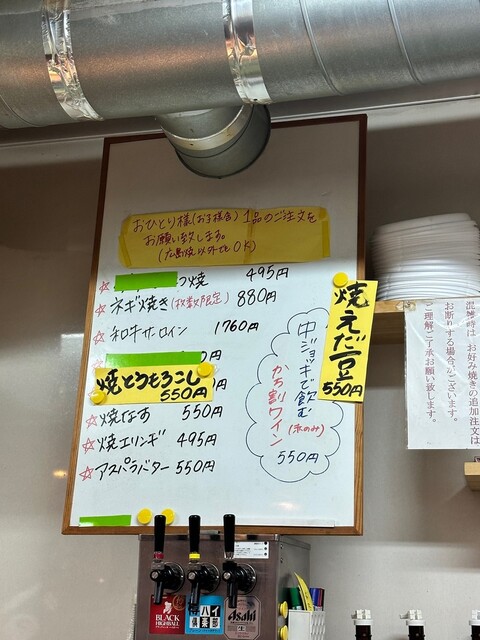 おひとり様(お子様含)1品のご注文を
お願い致します。
(広島焼以外でもOK)
つ焼 495円
☆ネギ焼き(枚数限定) 880円
☆和牛サーロイン 1760円
焼とうもろこし
550円
☆焼なす 550円
☆焼エリンギ 495円
☆アスパラバター 550円
焼えだ豆
550円
中ジョッキで飲む
(赤のみ)
かち割ワイン
550円
混雑時は、お好み焼きの追加注文は
お断りする場合がございます。
ご理解ご了承お願い致します。
BLACK
HIGHBALL
ハイ
倶楽部
Asahi
生